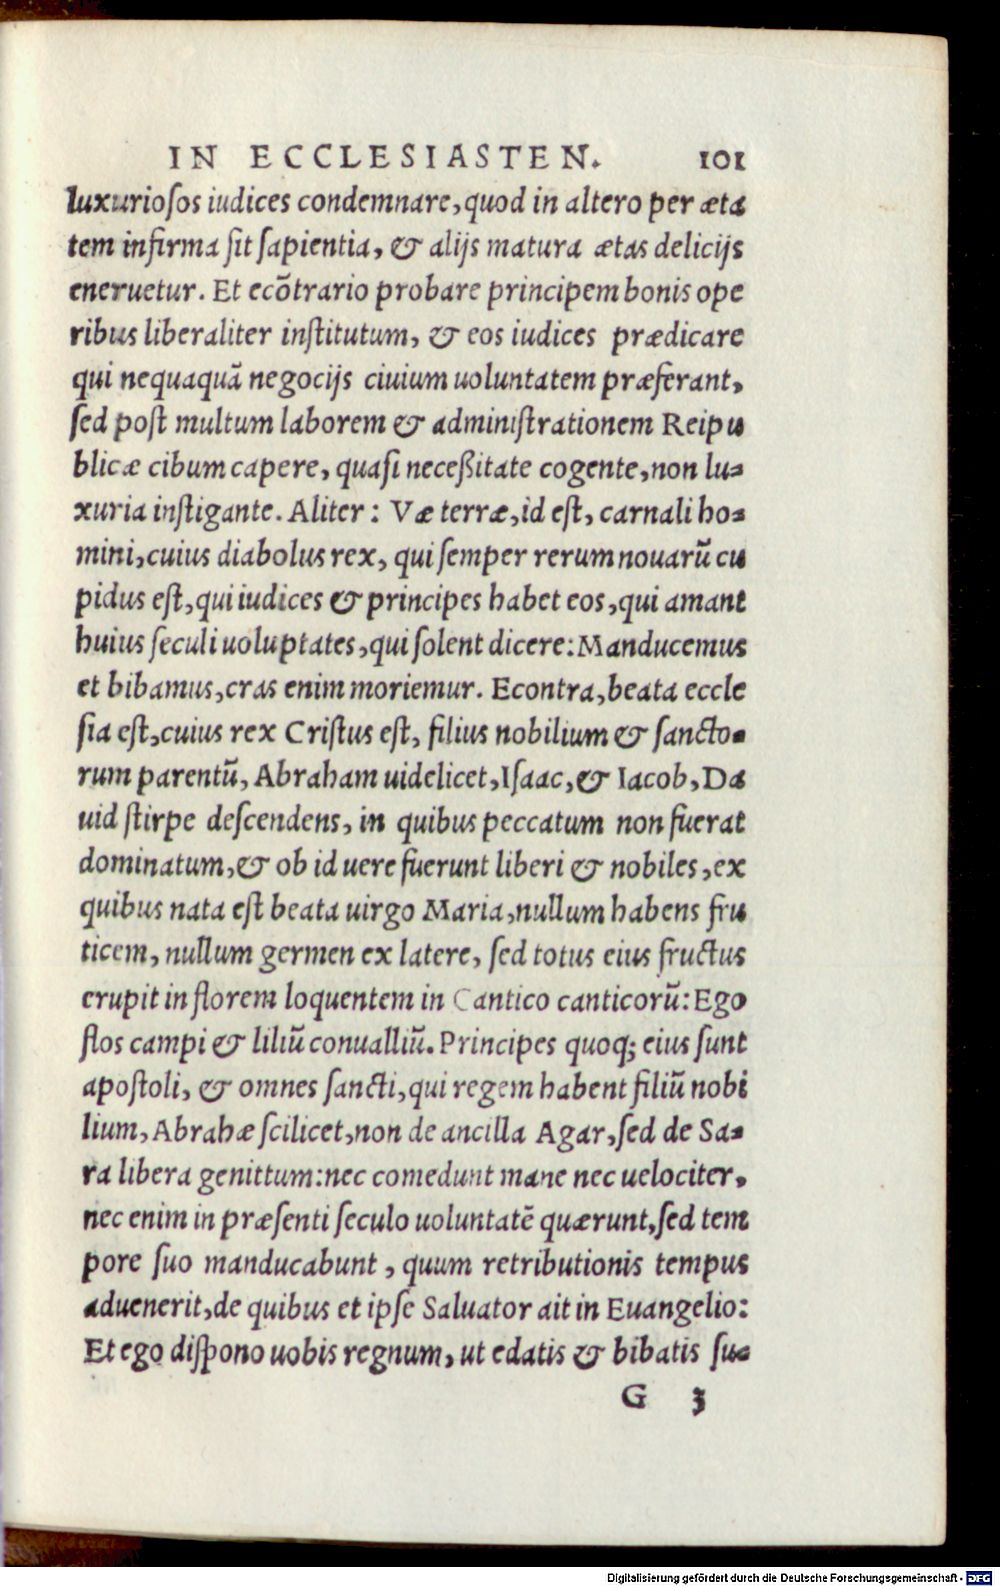 IN ECCLESIASTEN. 101
luxurioſos iudices condemnare, quod in altero per æta
tem infirma ſit ſapientia, & alijs matura ætas delicijs
eneruetur. Et ecōtrario probare principem bonis ope
ribus liberaliter inſtitutum, & eos iudices prædicare
qui nequaquā negocijs ciuium uoluntatem præferant,
ſed poſt multum laborem & adminiſtrationem Reipu
blicæ cibum capere, quaſi neceßitate cogente, non lu-
xuria inſtigante. Aliter: Væ terræ, id eſt, carnali ho-
mini, cuius diabolus rex, qui ſemper rerum nouarū cu
pidus eſt, qui iudices & principes habet eos, qui amant
huius ſeculi uoluptates, qui ſolent dicere: Manducemus
et bibamus, cras enim moriemur. Econtra, beata eccle
ſia eſt, cuius rex Criſtus eſt, filius nobilium & ſancto-
rum parentū, Abraham uidelicet, Iſaac, & Iacob, Da
uid ſtirpe deſcendens, in quibus peccatum non fuerat
dominatum, & ob id uere fuerunt liberi & nobiles, ex
quibus nata eſt beata uirgo Maria, nullum habens fru
ticem, nullum germen ex latere, ſed totus eius fructus
erupit in florem loquentem in Cantico canticorū: Ego
flos campi & liliū conualliū. Principes quoq; eius ſunt
apoſtoli, & omnes ſancti, qui regem habent filiū nobi
lium, Abrahæ ſcilicet, non de ancilla Agar, ſed de Sa-
ra libera genittum: nec comedunt mane nec uelociter,
nec enim in præſenti ſeculo uoluntatē quærunt, ſed tem
pore ſuo manducabunt, quum retributionis tempus
aduenerit, de quibus et ipſe Saluator ait in Euangelio:
Et ego diſpono uobis regnum, ut edatis & bibatis ſu-
G 3
Digitalisierung gefördert durch die Deutsche Forschungsgemeinschaft - DFG